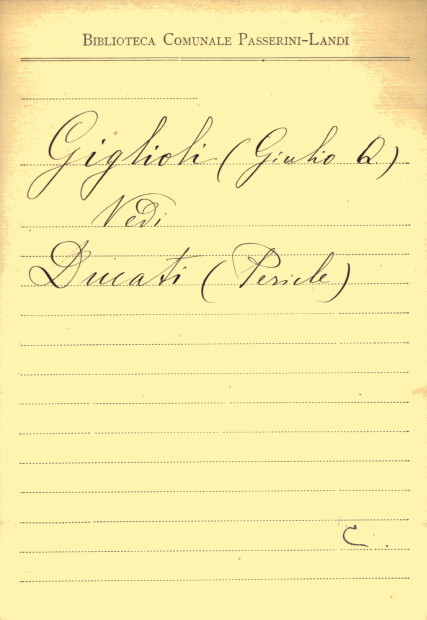 BIBLIOTECA COMUNALE PASSERINI-LANDI
Giglioli (Giulio Q)
Vedi
Ducati (Pericle)
C.